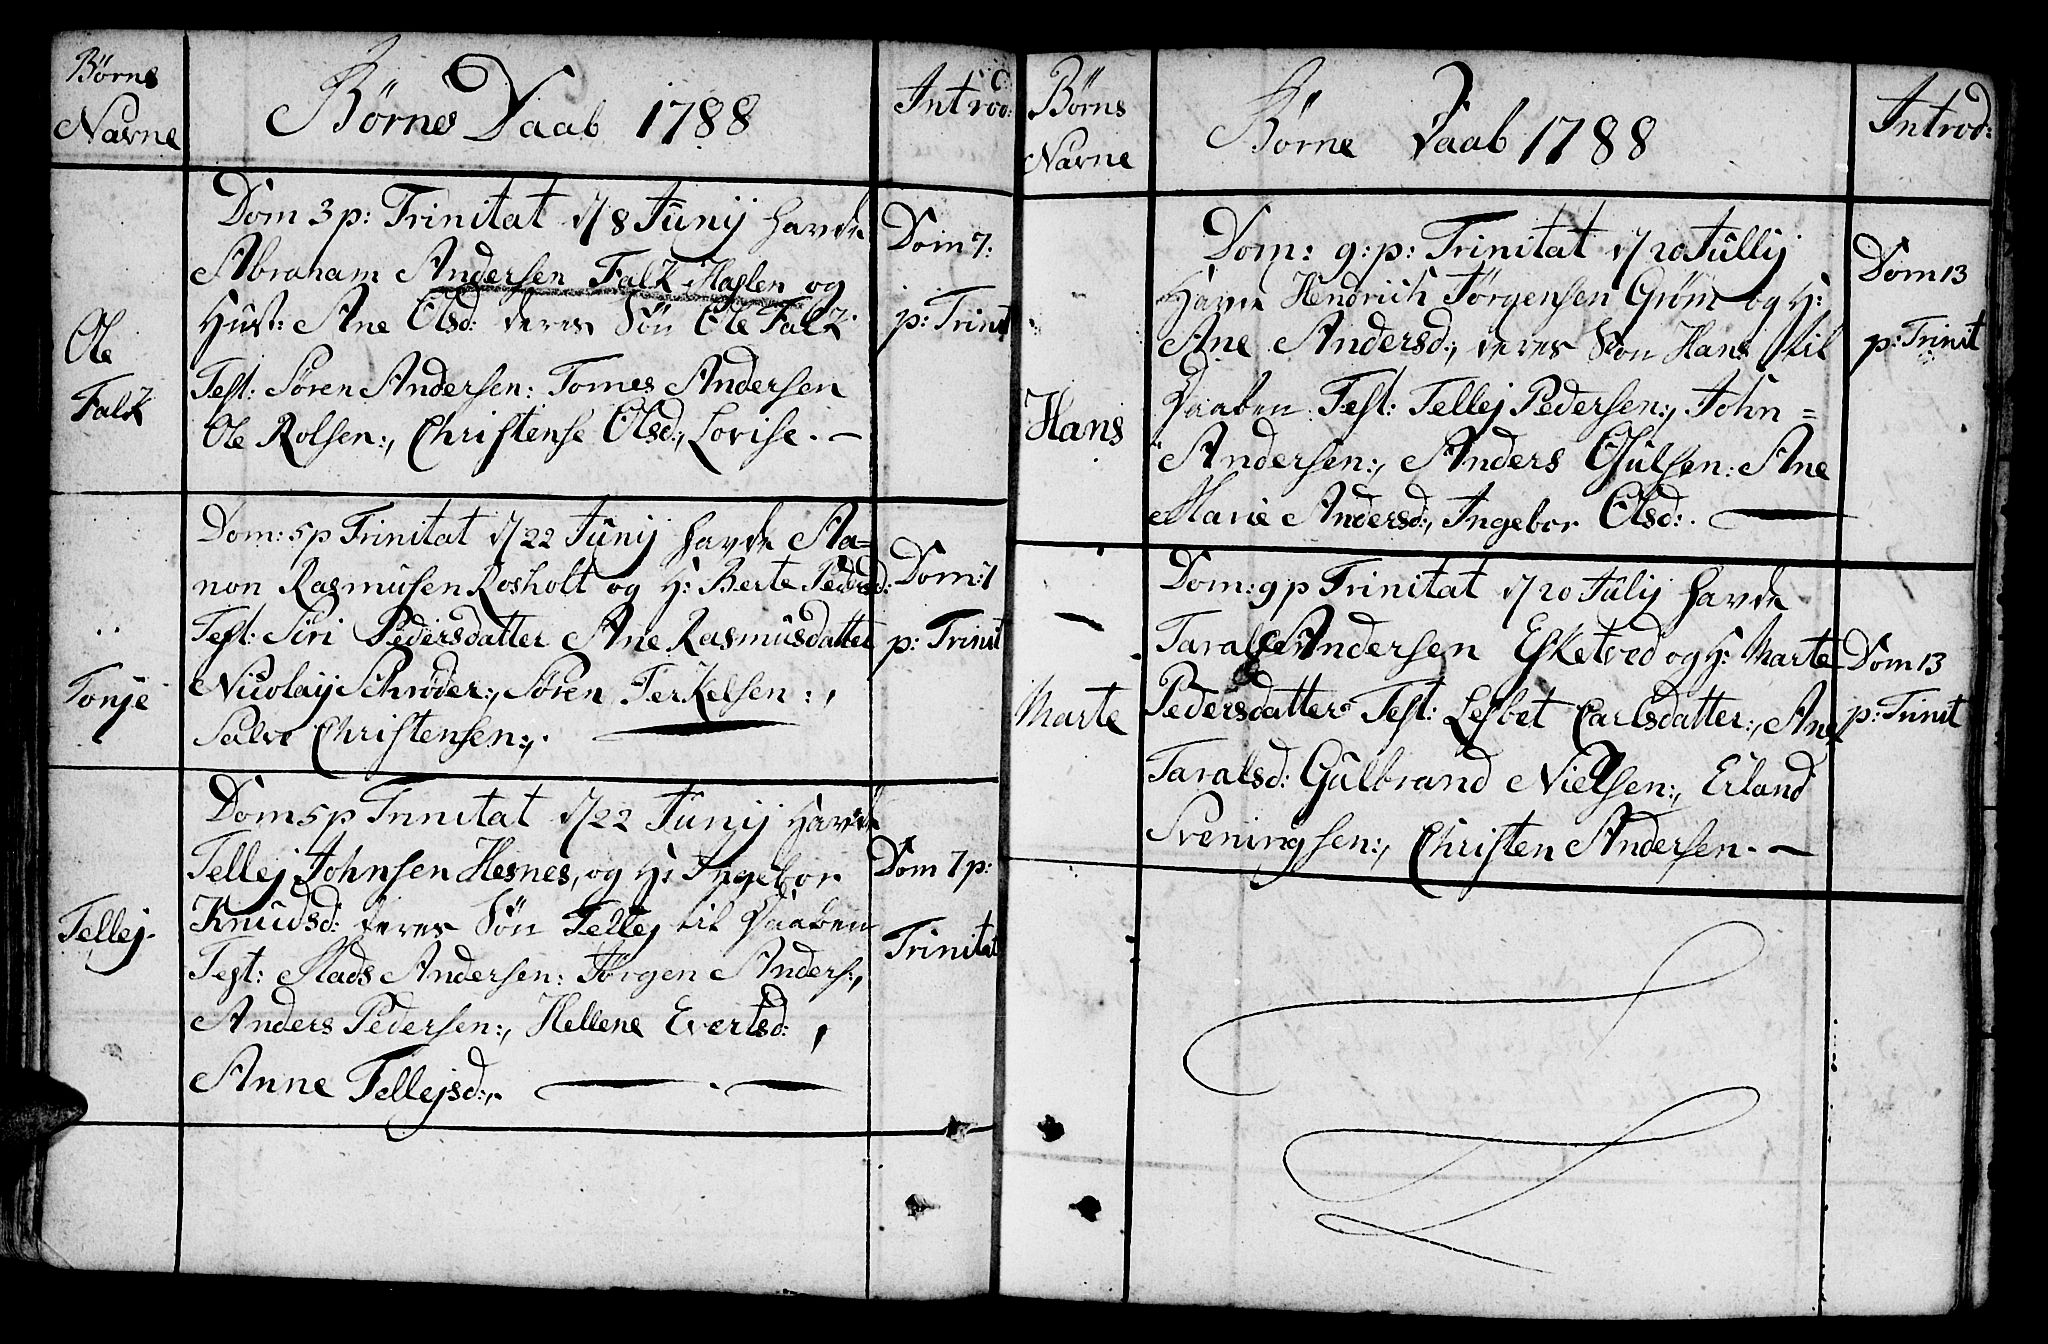 Børns
Navne
Børnes Daab 1788
Introd:
Dom 3 p: Trinitat d/8 Junij havde
Abraham Andersen Falk Haslen og
Hust: Ane Olsd: deres Søn Ole Falk
Test: Søren Andersen: Tomes Andersen
Ole Rolsen:, Christense Olsd:, Lovise. —
Ole
Falk
Dom 7:
p: Trinit
Dom: 5 p Trinitat d/22 Junij havde Aa=
non Rasmusen Rosholt og H: Berte Pedersd:
Test: Siri Pedersdatter Ane Rasmusdatter
Nicolaij Schrøder:, Søren Terkelsen:,
Salve Christensen:,.
Tonje
Dom: 7
p: Trinit
Dom 5 p Trinitat d/22 Junij havde
Tellej Johnsen Hesnes, og H: Ingebor
Knudsd: deres Søn Tellej til Daaben
Test: Mads Andersen: Jørgen Anders:,
Anders Pedersen:, Hellene Evertsd:,
Anne Tellejsd:,.
Tellej.
Dom 7 p:
Trinitat
Børns
Navne
Børne Daab 1788
Introd:
Dom: 9: p: Trinitat d/20 Jullij
havde Hendrich Jørgensen Grøm og H:
Ane Andersd:, deres Søn Hans til
Daaben Test: Tellej Pedersen:, John=
Andersen:, Anders Gulsen: Ane
Marie Andersd:, Ingebor Olsd:.
Hans
Dom 13
p: Trinit
Dom: 9 p Trinitat d/20 Julij havde
Andersen Esketved og H: Marte
Pedersdatter Test: Lesbet Carlsdatter:, Ane
Taralsd: Gulbrand Nielsen:, Erland
Sveningsen:, Christen Andersen. —
Marte
Dom 13
p: Trinit